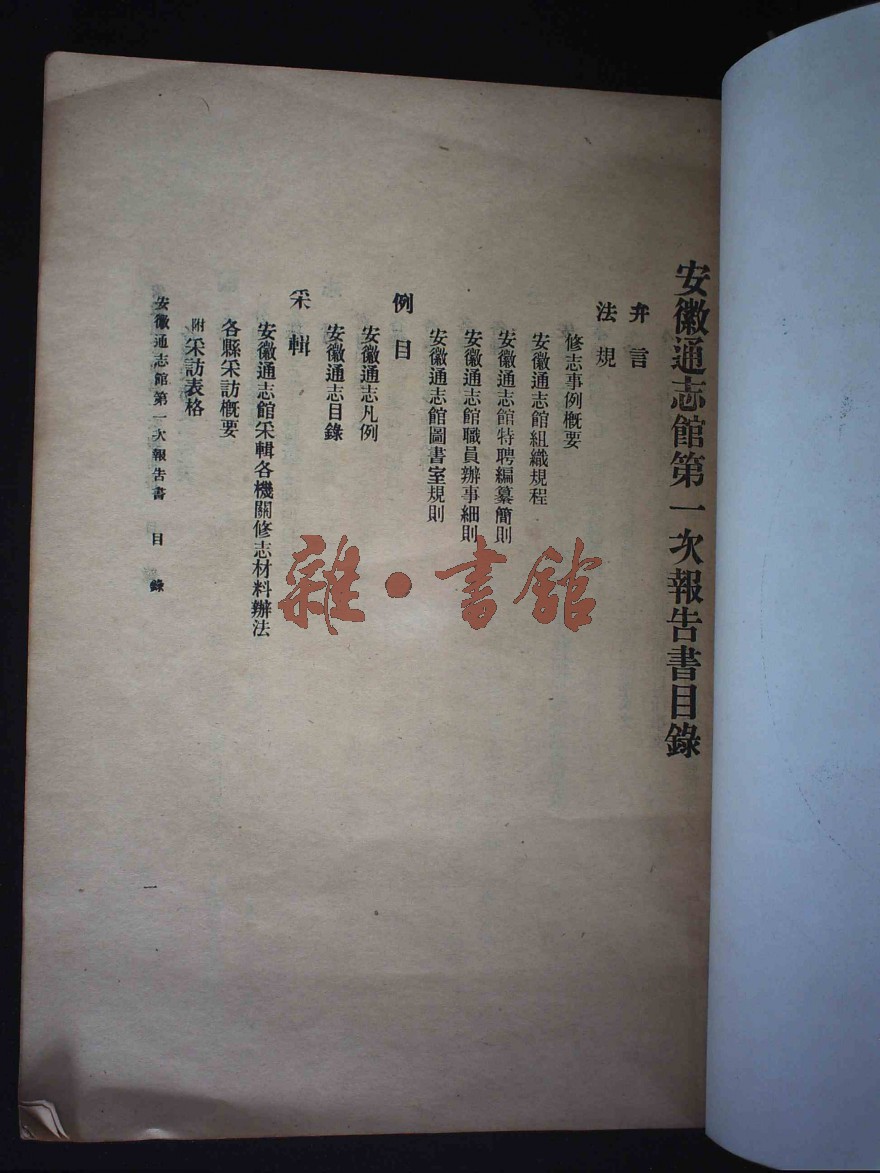 安徽通志館第一次報告書目錄
弁言
法規
修志事例概要
安徽通志館組織規程
安徽通志館特聘編纂簡則
安徽通志館職員辦事細則
安徽通志館圖書室規則
例目
安徽通志凡例
安徽通志目錄
采輯
安徽通志館采輯各機關修志材料辦法
各縣采訪概要
附采訪表格
安徽通志館第一次報告書 目錄
一
雜·書館